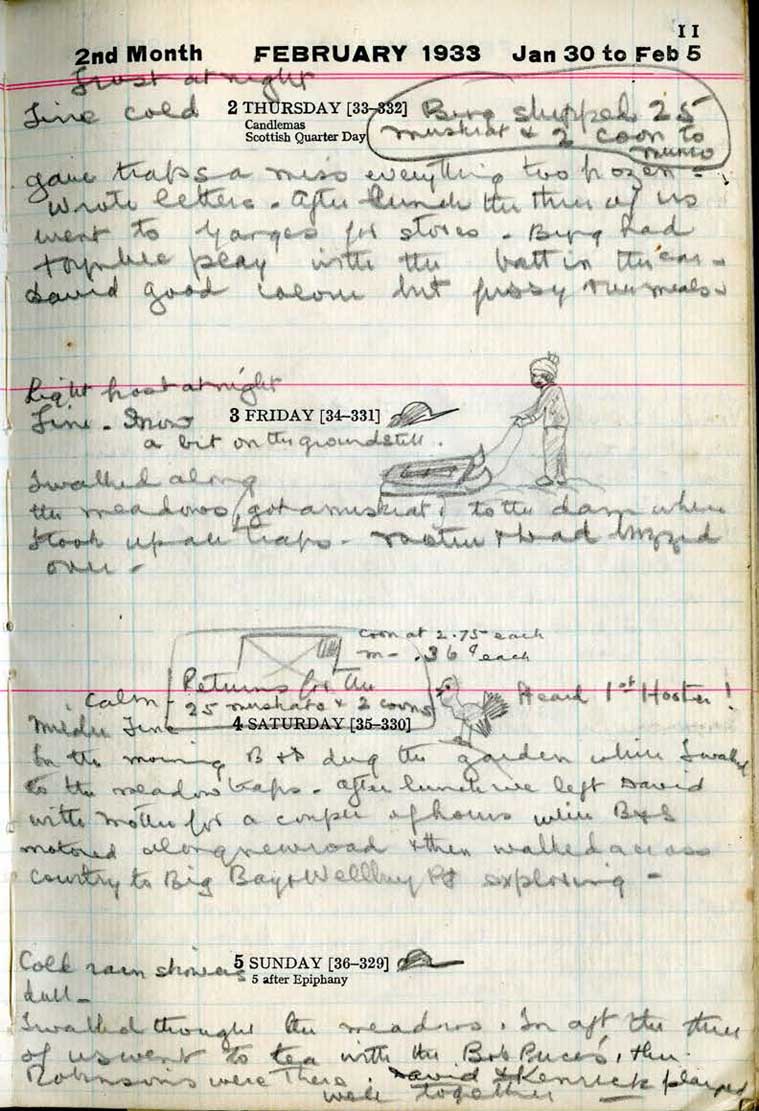 11
2nd Month FEBRUARY 1933 Jan 30 to Feb 5
Frost at night
Fine cold
2 THURSDAY [33-332]
Candlemas
Scottish Quarter Day
Berg shipped 25
muskrat & 2 coon to
gave traps a miss everything too frozen -
wrote letters. After lunch the three of us
went to Yarges for stores. Berg had
play with the batt in the car -
David good but fussy meals
Light frost at night
Fine. Snow
3 FRIDAY [34-331]
a bit on the ground still.
I walked along
the meadows (got a muskrat) to the dam where
I took up all traps. & Dad
over -
coon at 2.75 each
m - .36¢ each
Returns for the
25 muskrats & 2 coons
Calm
Heard 1st Hooter!
Fine
4 SATURDAY [35-330]
In the morning B & D dug the garden while I walked
to the meadow traps. After lunch we left David
with Mother for a couple of hours while B & I
motored along new road & then walked across
country to Big Bay & Pt exploring -
Cold rain showers
5 SUNDAY [36-329]
5 after Epiphany
dull -
I walked thought the meadows. In aft the three
of us went to tea with the Bob the
Robinsons were there. David & Kenrick played
well together